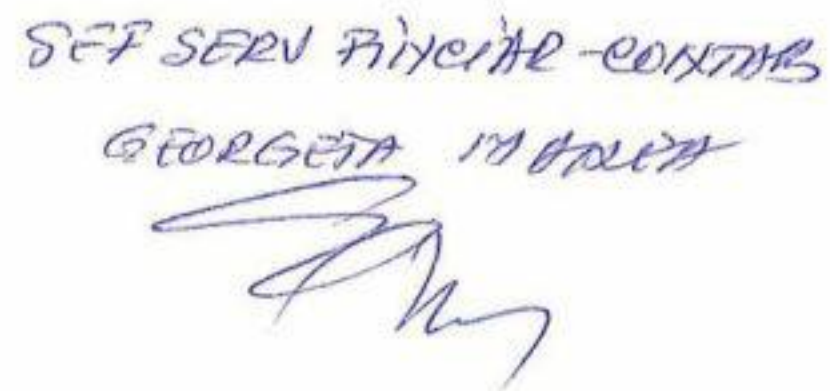 SEF SERV FINCIAR-CONTAB
GEORGETA